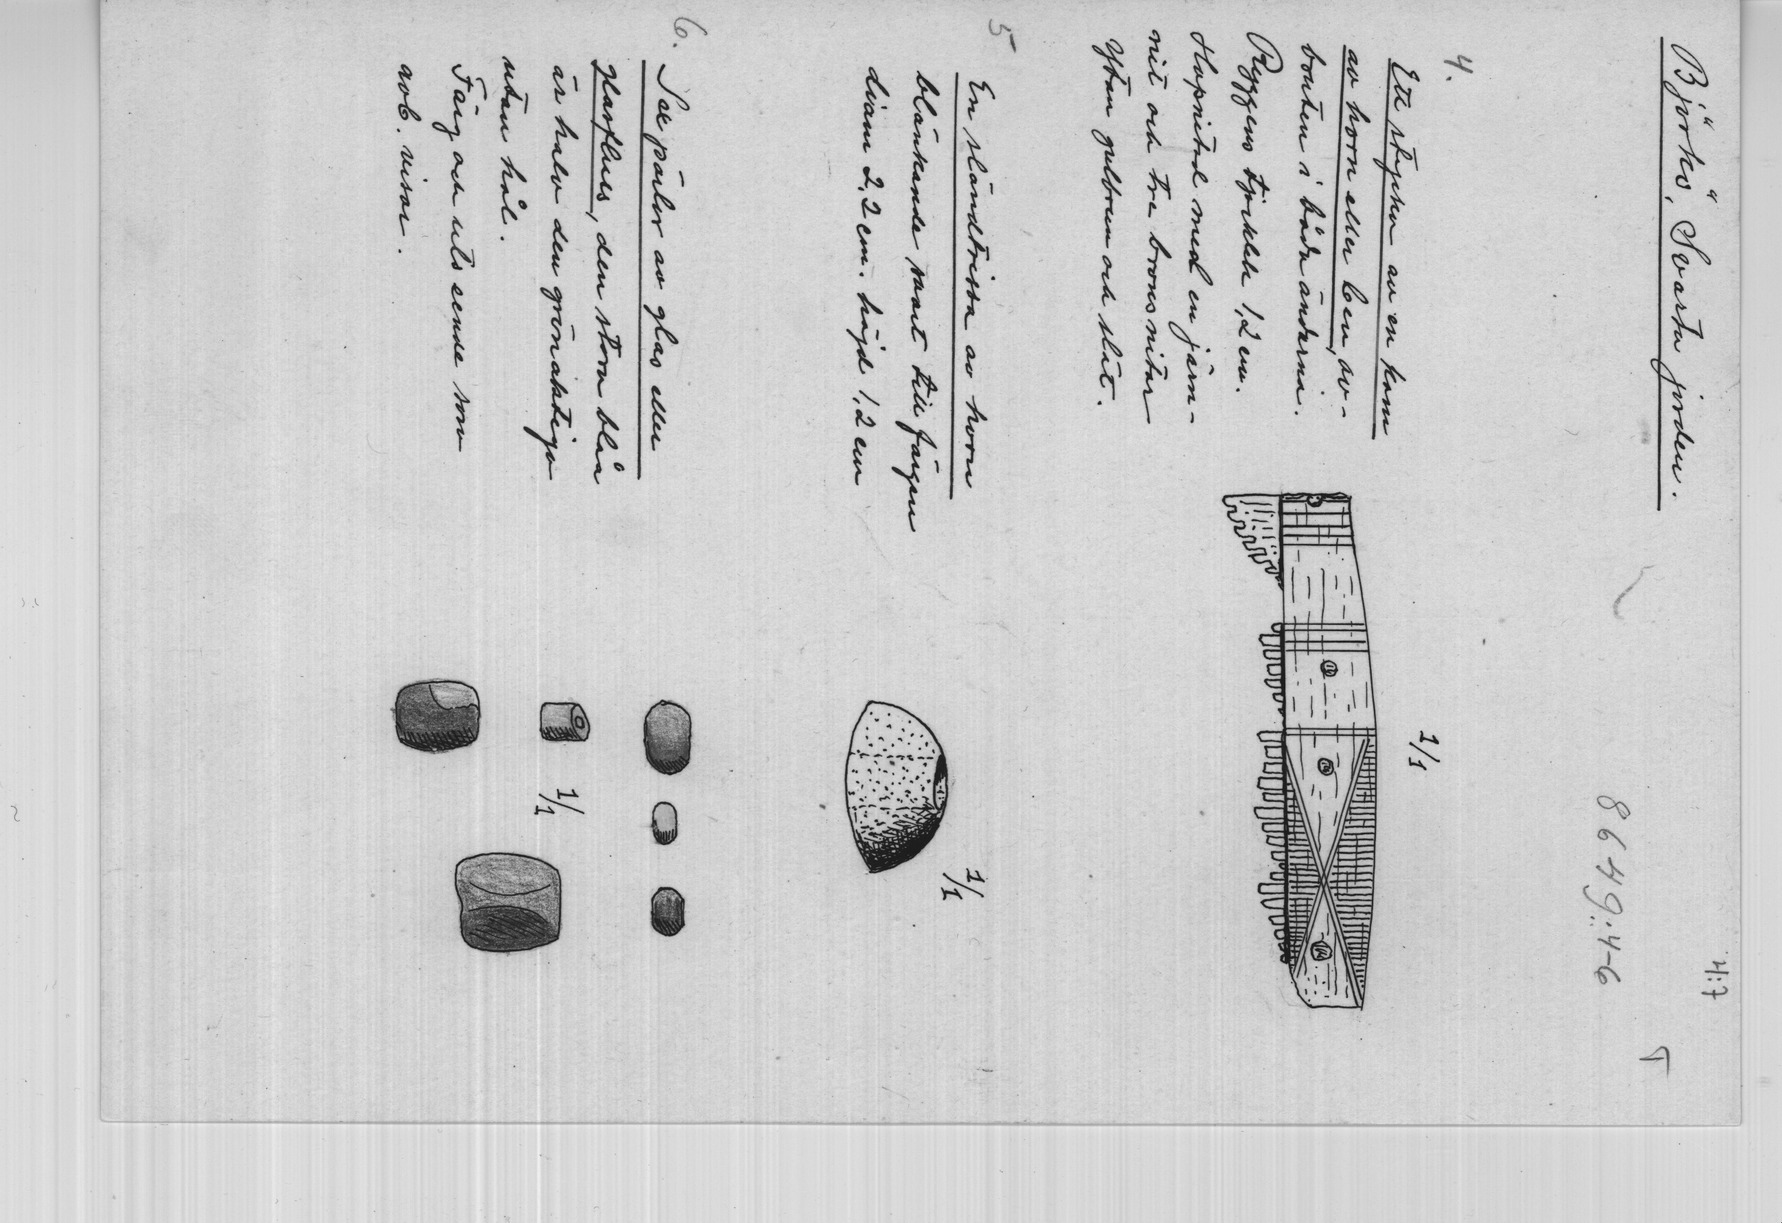 Björkö, Svarta jorden.
4:7
8649:4-6
5
4.
Ett stycke av en kam
av horn eller ben, av-
bruten i båda ändarna.
Ryggens tjocklek 1,2 cm.
Hopnitad med en järn-
nit och tre bronsnitar
Ytan gulbrun och slät.
1/1
5
En sländtrissa av horn
blänkande svart till färgen
diam 2,2 cm. höjd 1,2 cm
1/1
6.
Sex pärlor av glas eller
glasfluss, den stora blåa
är halv den grönaktiga
utan hål.
Färg och utseende som
avb. visar.
1/1